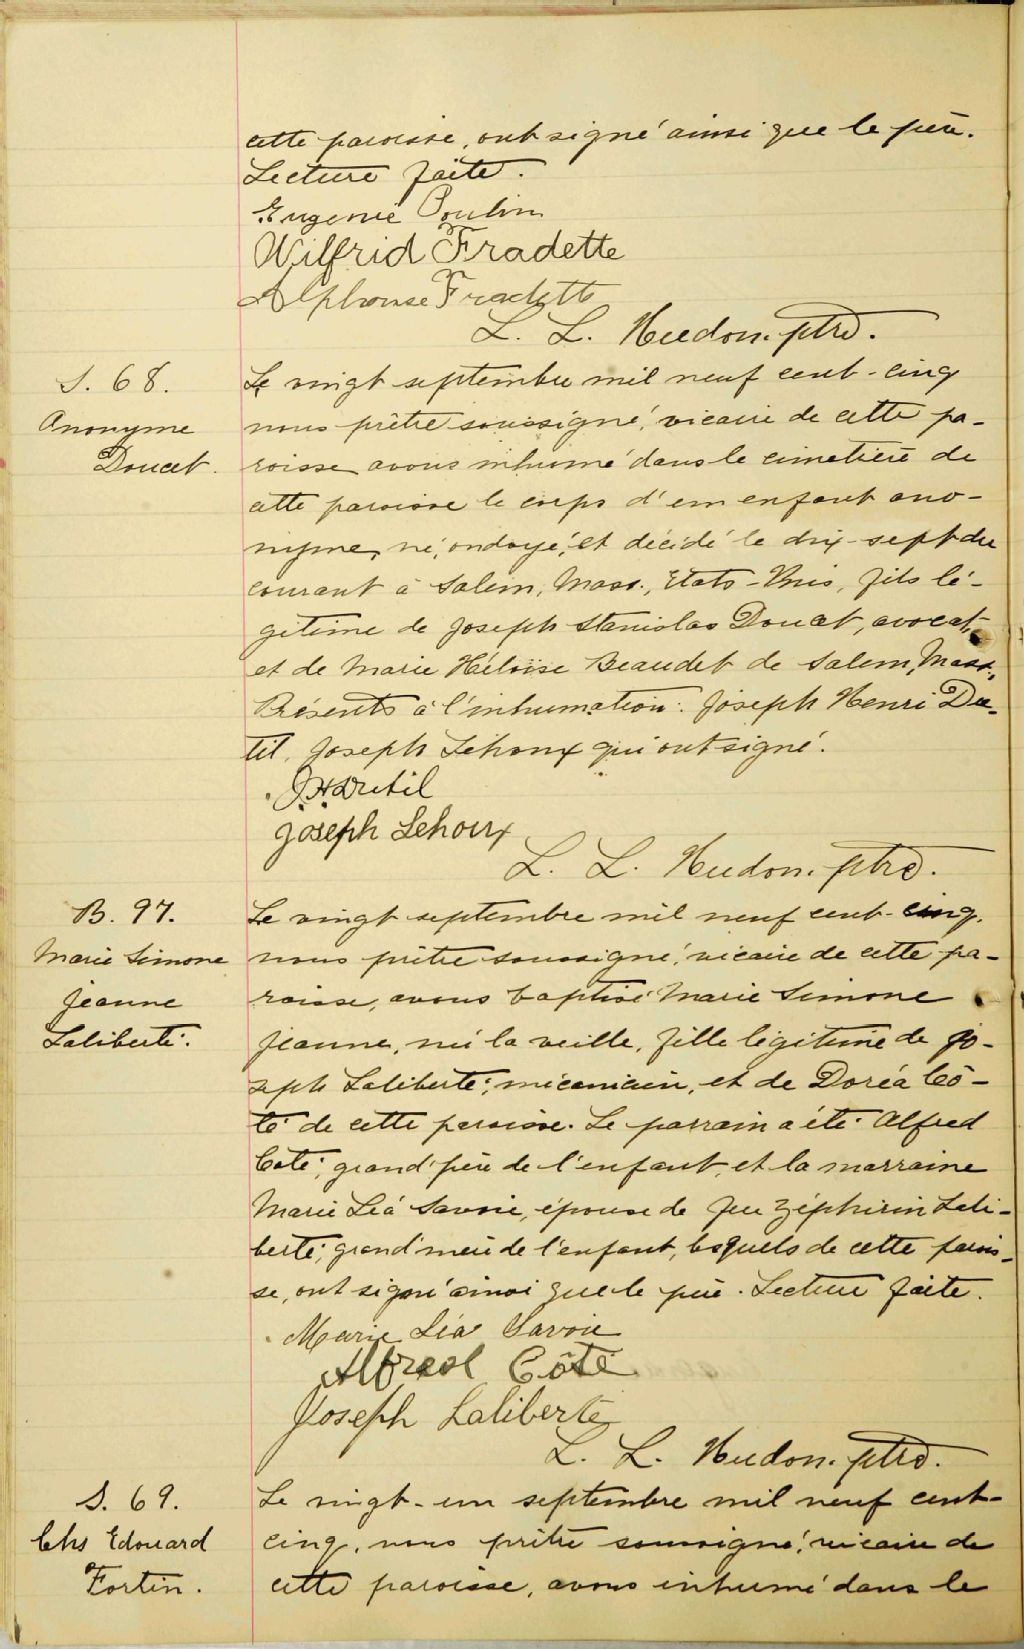 cette paroisse, ont signé ainsi que le père.
Lecture faite.
Eugenie Poulin
Wilfrid Fradette
Alphonse Fradette
L. L. Hudon. ptre.
S. 68.
Anonyme
Doucet.
Le vingt septembre mil neuf cent-cinq
nous prêtre soussigné, vicaire de cette pa-
roisse avons inhumé dans le cimetière de
cette paroisse le corps d'un enfant ano-
nyme, né, ondoyé, et décédé le dix-sept du
courant à Salem, Mass., Etats-Unis, fils lé-
gitime de Joseph Stanislas Doucet, avocat,
et de Marie Héloïse Beaudet de Salem, Mass.,
Présents à l'inhumation: Joseph Henri Du-
til, Joseph Lehoux qui ont signé.
J H Dutil
Joseph Lehoux
L. L. Hudon. ptre.
B. 97.
Marie Simone
Jeanne
Laliberté.
Le vingt septembre mil neuf cent-cinq.
nous prêtre soussigné, vicaire de cette pa-
roisse, avons baptisé Marie Simone
Jeanne, née la veille, fille légitime de Jo-
seph Laliberté, mécanicien, et de Doréa Cô-
té de cette paroisse. Le parrain a été Alfred
Coté, grand'père de l'enfant, et la marraine
Marie Léa Savoie, épouse de feu Zéphirin Lali-
berté, grand'mère de l'enfant, lesquels de cette parois-
se, ont signé ainsi que le père. Lecture faite.
Marie Léa Savoie
Alfred Côté
Joseph Laliberté
L. L. Hudon. ptre.
S. 69.
Chs Edouard
Fortin.
Le vingt-un septembre mil neuf cent-
cinq, nous prêtre soussigné, vicaire de
cette paroisse, avons inhumé dans le